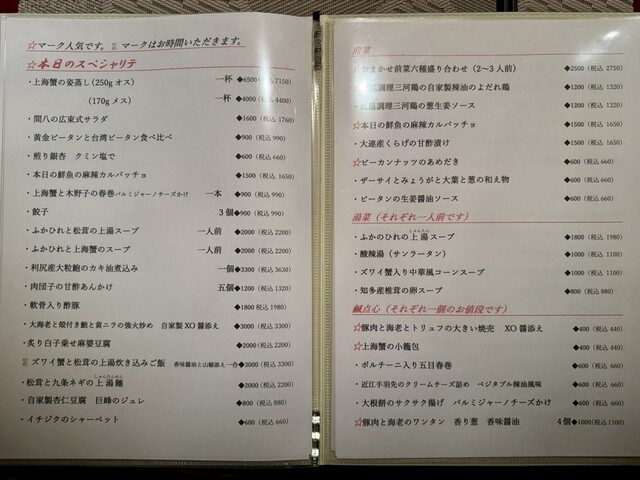 ☆マーク人気です。 ⌛ マークはお時間いただきます。
☆本日のスペシャリテ
・上海蟹の姿蒸し(250g オス) 一杯 ◆6500(税込 7150)
(170g メス) 一杯 ◆4000(税込 4400)
・間八の広東式サラダ ◆1600(税込 1760)
・黄金ピータンと台湾ピータン食べ比べ ◆900(税込 990)
・煎り銀杏 クミン塩で ◆600(税込 660)
・本日の鮮魚の麻辣カルパッチョ ◆1500(税込 1650)
・上海蟹と木野子の春巻パルミジャーノチーズかけ 一本 ◆900(税込 990)
・餃子 3個◆900(税込 990)
・ふかひれと松茸の上湯スープ 一人前 ◆2000(税込 2200)
・ふかひれと上海蟹のスープ 一人前 ◆2000(税込 2200)
・利尻産大粒鮑のカキ油煮込み 一個◆3300(税込 3630)
・肉団子の甘酢あんかけ 五個◆1200(税込 1320)
・軟骨入り酢豚 ◆1800(税込 1980)
・大海老と殻付き鮑と黄ニラの強火炒め 自家製 XO 醤添え ◆3000(税込 3300)
・炙り白子乗せ麻婆豆腐 ◆2000(税込 2200)
⌛ ズワイ蟹と松茸の上湯炊き込みご飯 香味醤油と山椒添え一合◆3000(税込 3300)
・松茸と九条ネギの上湯麺 ◆2000(税込 2200)
・自家製杏仁豆腐 巨峰のジュレ ◆800(税込 880)
・イチジクのシャーベット ◆600(税込 660)
前菜
☆おまかせ前菜六種盛り合わせ(2〜3人前) ◆2500(税込 2750)
低温調理三河鶏の自家製辣油のよだれ鶏 ◆1200(税込 1320)
・低温調理三河鶏の葱生姜ソース ◆1200(税込 1320)
☆本日の鮮魚の麻辣カルパッチョ ◆1500(税込 1650)
・大連産くらげの甘酢漬け ◆1500(税込 1650)
☆ピーカンナッツのあめだき ◆600(税込 660)
・ザーサイとみょうがと大葉と葱の和え物 ◆600(税込 660)
・ピータンの生姜醤油ソース ◆600(税込 660)
湯菜(それぞれ一人前です)
・ふかのひれの上湯スープ ◆1800(税込 1980)
・酸辣湯(サンラータン) ◆1000(税込 1100)
・ズワイ蟹入り中華風コーンスープ ◆1000(税込 1100)
・知多産椎茸の卵スープ ◆800(税込 880)
鹹点心(それぞれ一個のお値段です)
☆豚肉と海老とトリュフの大きい焼売 XO 醤添え ◆400(税込 440)
☆上海蟹の小籠包 ◆400(税込 440)
・ポルチーニ入り五目春巻 ◆600(税込 660)
・近江手羽先のクリームチーズ詰め ベジタブル辣油風味 ◆600(税込 660)
・大根餅のサクサク揚げ パルミジャーノチーズかけ ◆600(税込 660)
☆豚肉と海老のワンタン 香り葱 香味醤油 4個◆1000(税込 1100)